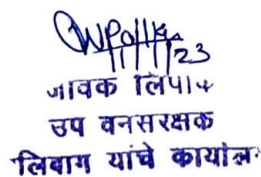 11/11/23
जावक लिपीक
उप वनसरक्षक
लिबाग यांचे कार्याल